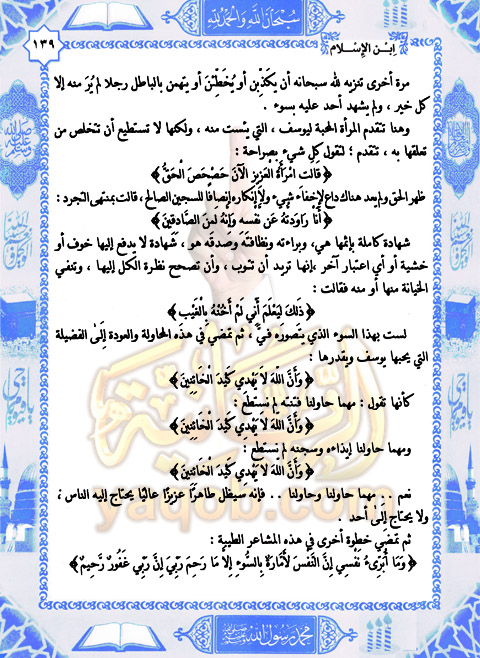 سُبْحَانَ اللَّه وَالْحَمْدُ لِلَّه
١٣٩
ابن الإسلام
مرة أخرى تنزيه لله سبحانه أن يكذبن أو يُخَطِّئْنَ أو يتهمن بالباطل رجلا لم يُرَ منه إلا
كل خير ، ولم يشهد أحد عليه بسوء .
وهنا تتقدم المرأة المحبة ليوسف ، التي يئست منه ، ولكنها لا تستطيع أن تتخلص من
تعلقها به ، تتقدم ؛ لتقول كل شيء بصراحة :
﴿ قَالَتِ امْرَأَةُ الْعَزِيزِ الْآنَ حَصْحَصَ الْحَقُّ ﴾
ظهر الحق ولم يعد هناك داع لإخفاء شيء ولا إنكاره إنصافا للسجين الصالح ، قالت بمنتهى التجرد :
﴿ أَنَا رَاوَدتُّهُ عَن نَّفْسِهِ وَإِنَّهُ لَمِنَ الصَّادِقِينَ ﴾
شهادة كاملة بإثمها هي، وبراءته ونظافته وصدقه هو ، شهادة لا يدفع إليها خوف أو
خشية أو أي اعتبار آخر ،إنها تريد أن تتوب ، وأن تصحح نظرة الكل إليها ، وتنفي
الخيانة منها أو منه فقالت :
﴿ ذَلِكَ لِيَعْلَمَ أَنِّي لَمْ أَخُنْهُ بِالْغَيْبِ ﴾
لست بهذا السوء الذي يتصوره فيَّ ، ثم تمضي في هذه المحاولة والعودة إلى الفضيلة
التي يحبها يوسف ويقدرها :
﴿ وَأَنَّ اللَّهَ لَا يَهْدِي كَيْدَ الْخَائِنِينَ ﴾
كأنها تقول : مهما حاولنا فتنته لم نستطع :
﴿ وَأَنَّ اللَّهَ لَا يَهْدِي كَيْدَ الْخَائِنِينَ ﴾
ومهما حاولنا إيذاءه وسجنه لم نستطع :
﴿ وَأَنَّ اللَّهَ لَا يَهْدِي كَيْدَ الْخَائِنِينَ ﴾
نعم . . مهما حاولنا وحاولنا . . فإنه سيظل طاهرًا عزيزًا عاليًا يحتاج إليه الناس ،
ولا يحتاج إلى أحد .
ثم تمضي خطوة أخرى في هذه المشاعر الطيبة :
﴿ وَمَا أُبَرِّىءُ نَفْسِي إِنَّ النَّفْسَ لَأَمَّارَةٌ بِالسُّوءِ إِلَّا مَا رَحِمَ رَبِّيَ إِنَّ رَبِّي غَفُورٌ رَّحِيمٌ ﴾
yaqob.com
محمد رسول الله